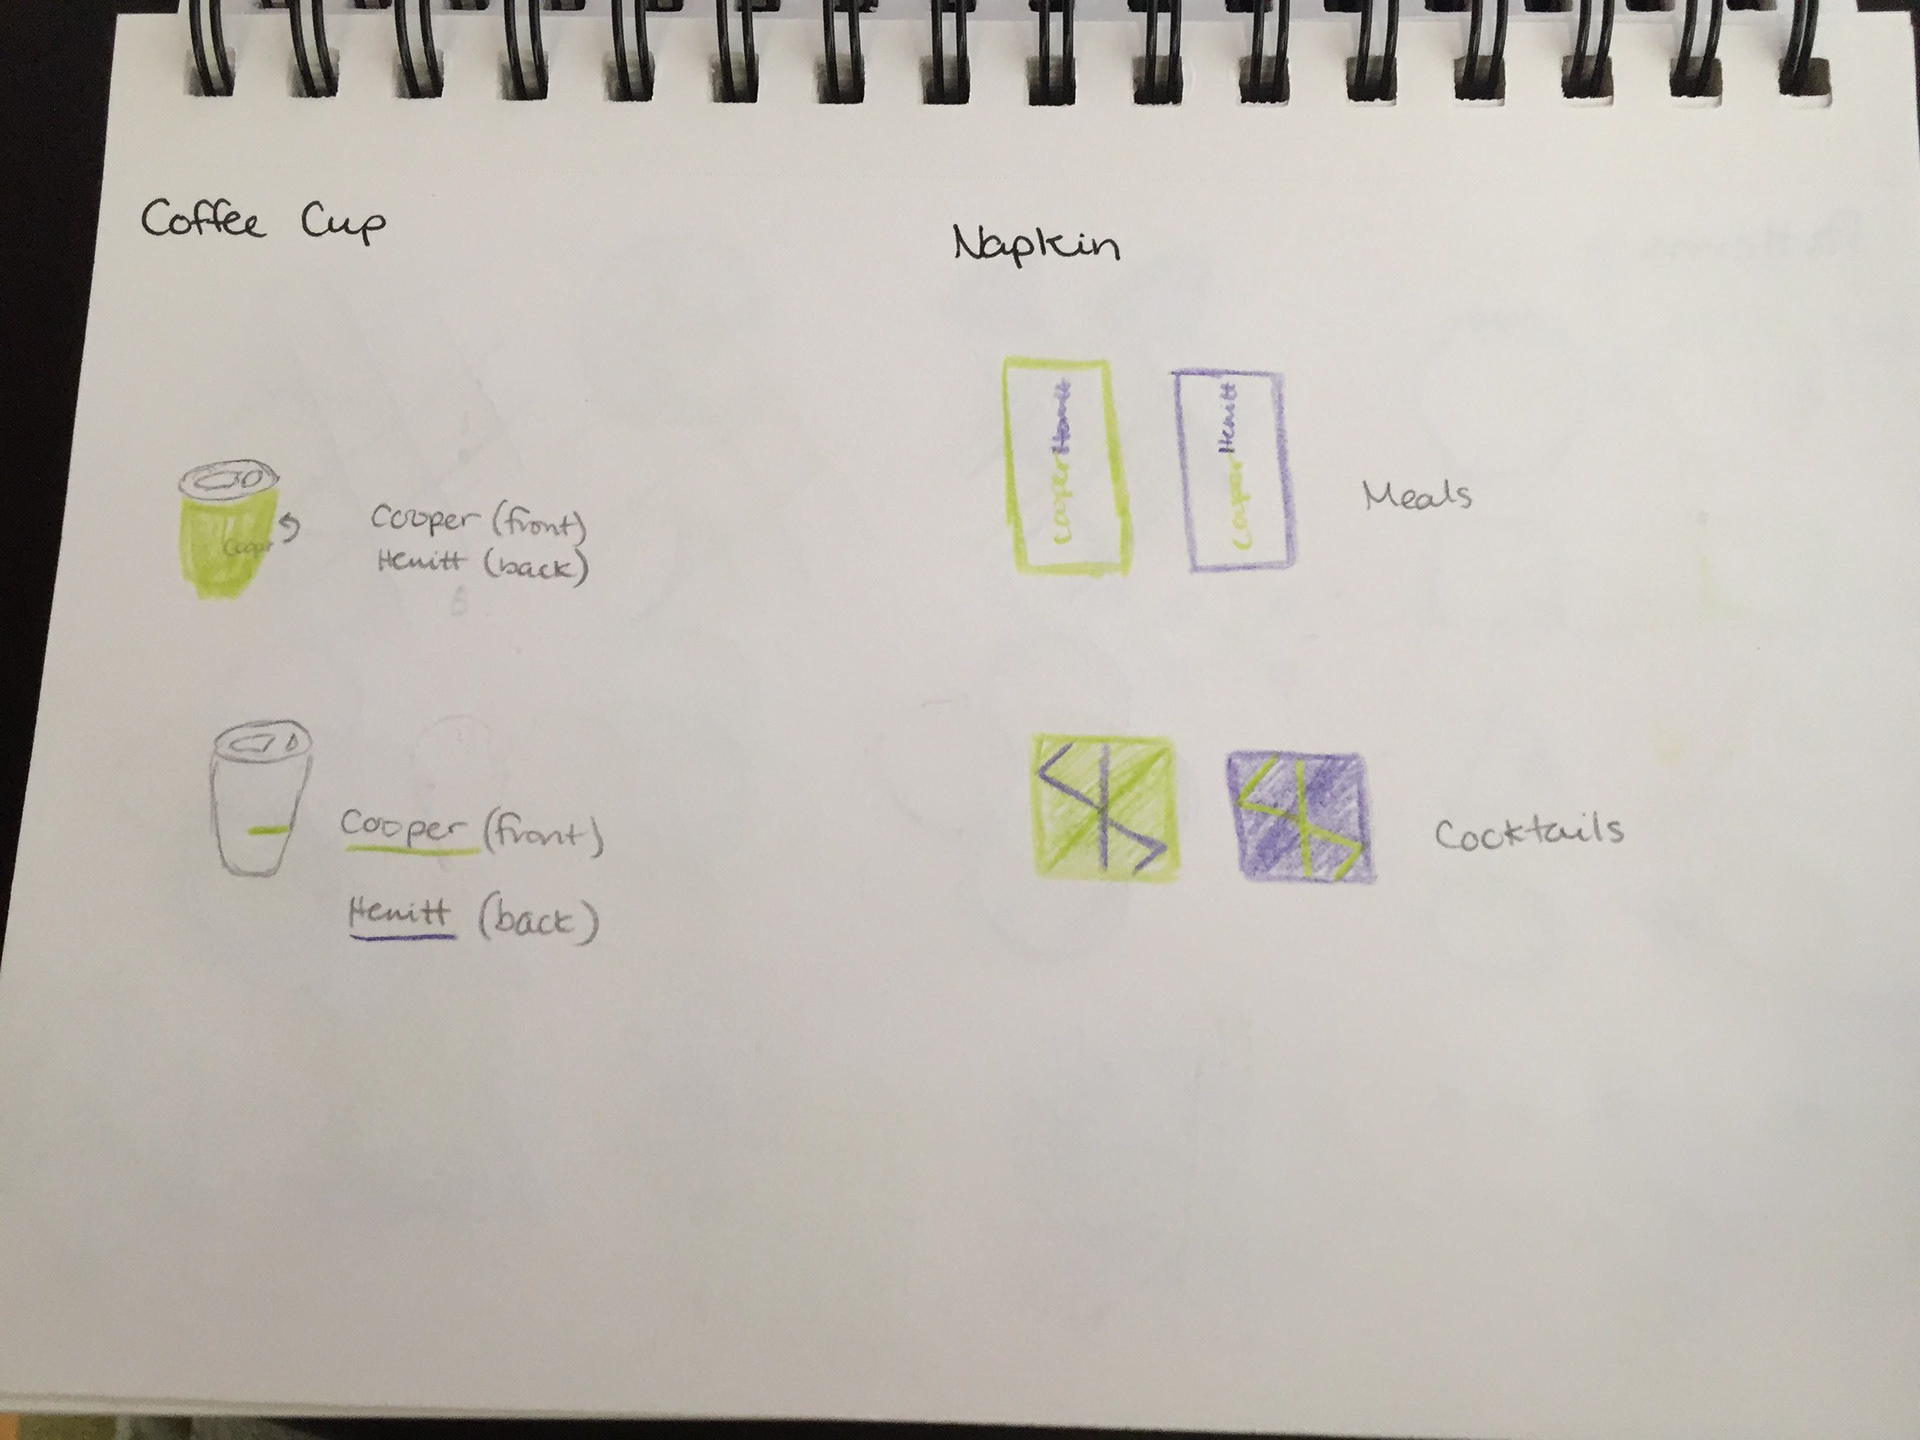 Coffee Cup
Cooper
Cooper (front)
Hewitt (back)
Cooper (front)
Hewitt (back)
Napkin
CooperHewitt
CooperHewitt
Meals
Cocktails